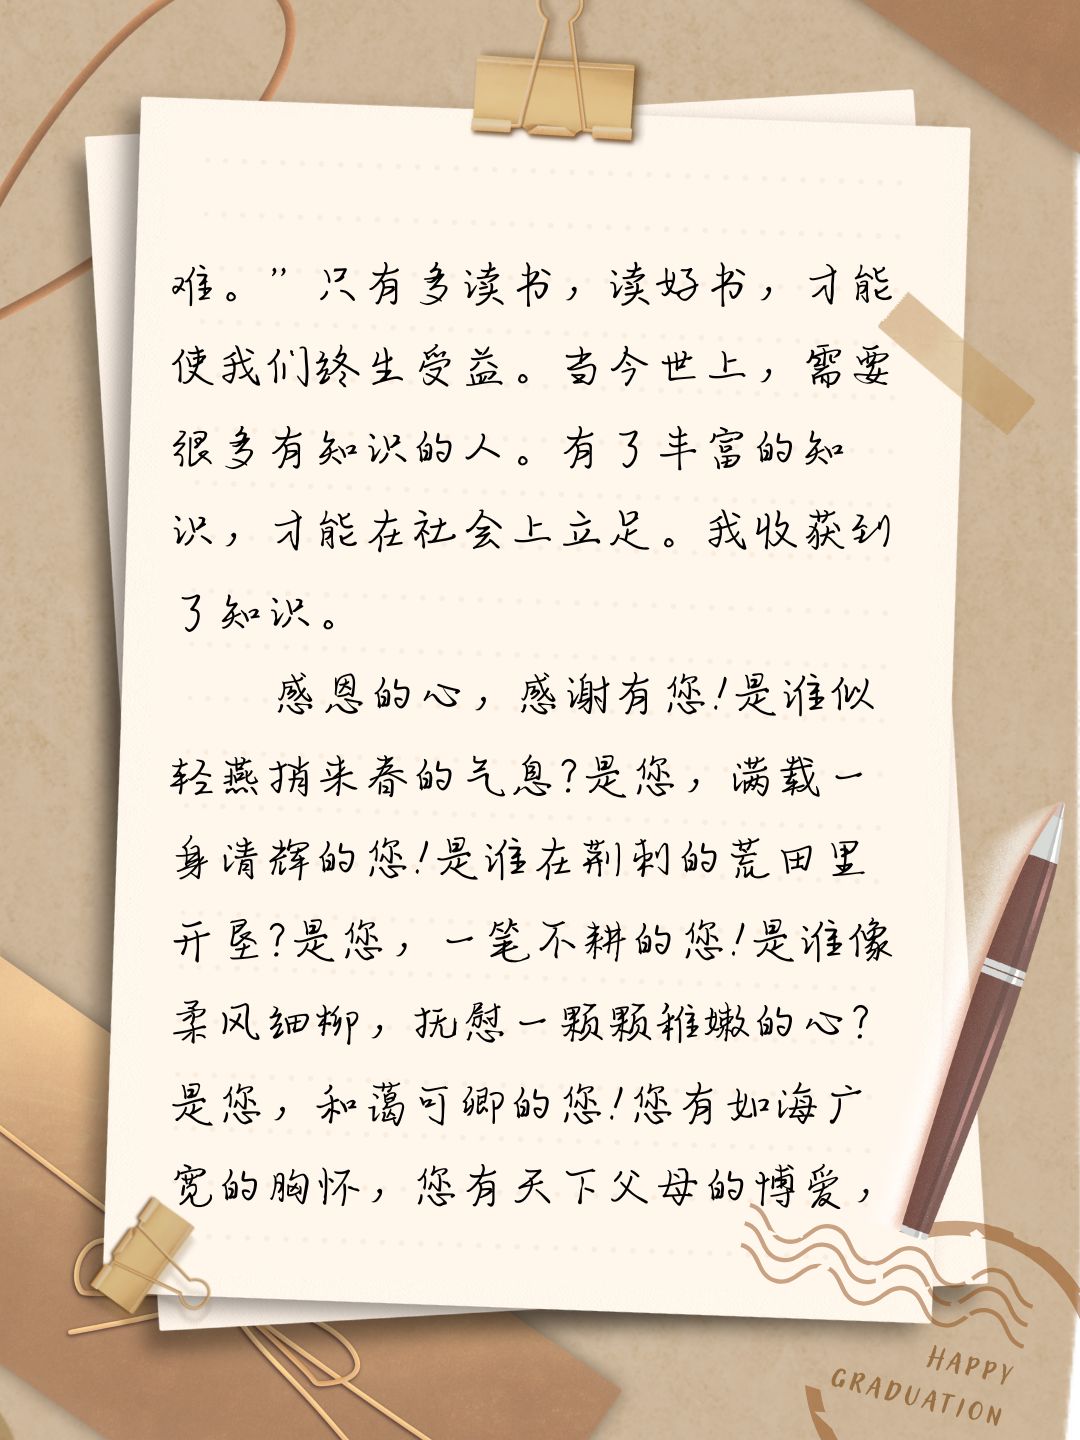 难。”只有多读书，读好书，才能
使我们终生受益。当今世上，需要
很多有知识的人。有了丰富的知
识，才能在社会上立足。我收获到
了知识。
感恩的心，感谢有您!是谁似
轻燕捎来春的气息?是您，满载一
身清辉的您!是谁在荆刺的荒田里
开垦?是您，一笔不耕的您!是谁像
柔风细柳，抚慰一颗颗稚嫩的心?
是您，和蔼可卿的您!您有如海广
宽的胸怀，您有天下父母的博爱，
HAPPY
GRADUATION